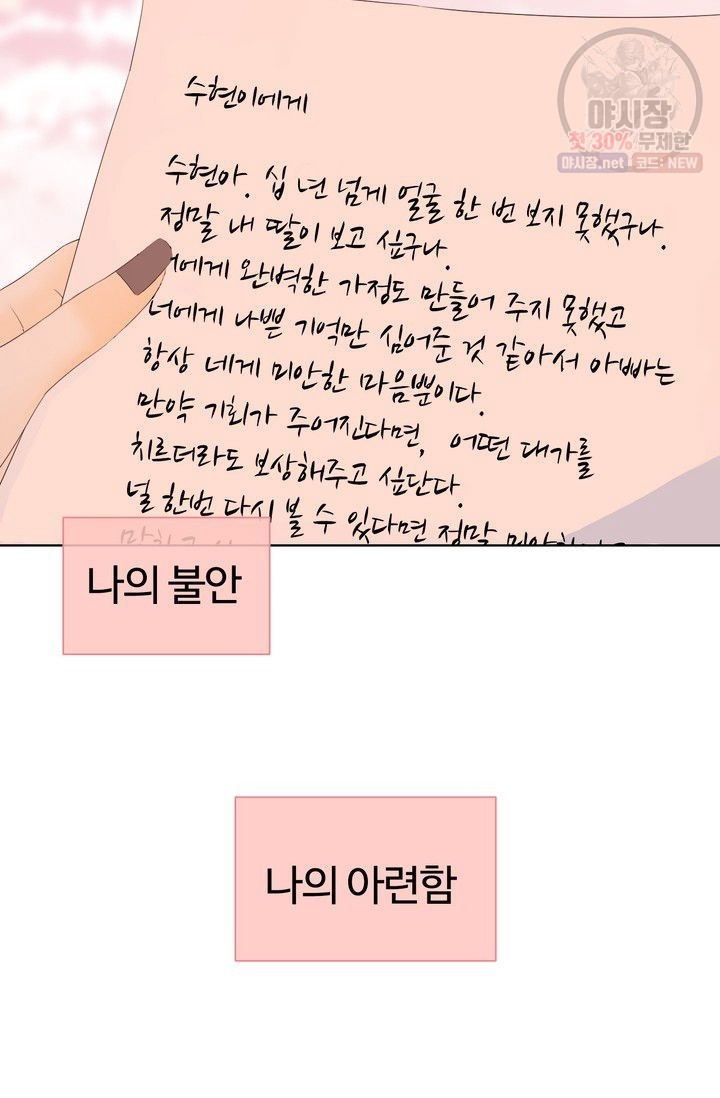 야시장
첫 30% 무제한
야시장.net 코드: NEW
수현이에게
수현아. 십 년 넘게 얼굴 한 번 보지 못했구나.
정말 내 딸이 보고 싶구나.
에게 완벽한 가정도 만들어 주지 못했고
너에게 나쁜 기억만 심어준 것 같아서 아빠는
항상 네게 미안한 마음뿐이다.
만약 기회가 주어진다면, 어떤 대가를
치르더라도 보상해주고 싶단다.
널 한번 다시 볼 수 있다면 정말
나의 불안
나의 아련함